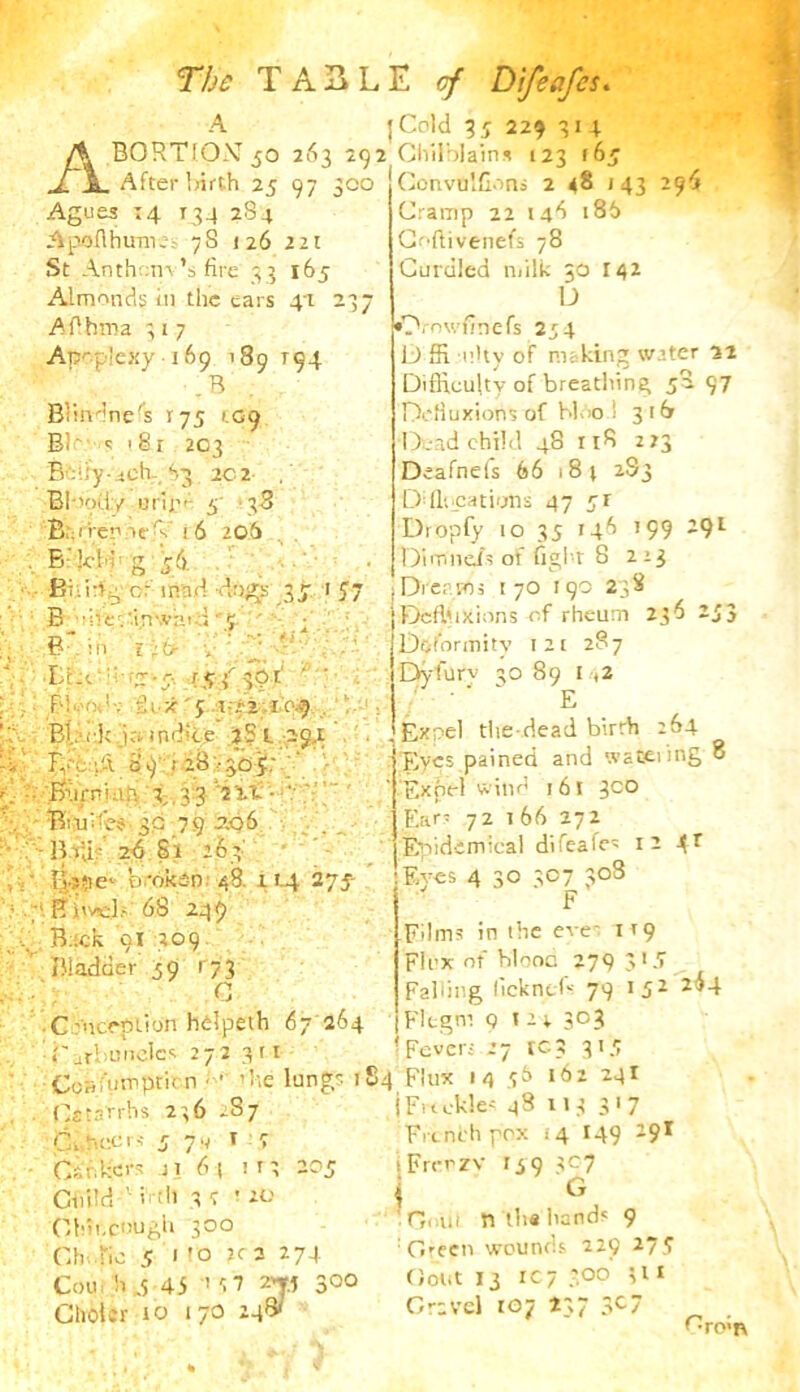 The TABLE of Difeafes.
A
ABORTION 50 263 292
After birth 25 97 300
Agues 14 134 284
Apofthumes 78 126 221
St Anthony's fire 33 165
Almonds in the ears 41 237
Afthma 317
Apoplexy 169 189 194
B
Blindnefs 175 109
181 203
Belly-ach 83 202
Bloody urine 5 38
Barrennefs 16 206
Belching 56
Biting of mad dogs 35 157
5
in
5 301
Bloody flux 5 112 109
Black jaundice 281 291
89 128 305
Burning 3 33 211
Bruifes 30 79 206
Boils 26 81 263
Bones broken 48 114 275
Bowels 68 249
Back 91 309
Bladder 59 173
C
Conception helpeth 67 264
Carbuncles 272 311
Confumption the lungs 184
Catarrhs 236 287
5 79
Cankers 11 61 113 205
Child birth 35 120
Chincough 300
5 110 202 274
Cough 5 45 157 275 300
Choler 10 170 248
Cold 35 229 314
Chilblains 123 165
Convulfions 2 48 143 296
Cramp 22 146 186
Coftivenefs 78
Curdled milk 30 142
D
Drowfinefs 254
Difficulty of making water 22
Difficulty of breathing 58 97
Defluxions of blood 316
Dead child 48 118 273
Deafnefs 66 184 283
Diflocations 47 51
Dropfy 10 35 146 199 291
Dimnefs of fight 8 223
Dreams 170 190 238
Defluxions of rheum 236 253
Deformity 121 287
Dyfury 30 89 142
E
Expel the dead birth 264
Eyes pained and watering 8
Expel wind 161 300
Ears 72 166 272
Epidemical difeafes 12 41
Eyes 4 30 307 308
F
Films in the eyes 119
Flux of blood 279 315
Falling ficknefs 79 152 264
Flegm 9 124 303
Fevers 27 103 315
Flux 14 56 162 241
Freckles 48 113 317
French pox 14 149 291
Frenzy 159 307
G
Gout in the hands 9
Green wounds 229 275
Gout 13 107 300 311
Gravel 107 237 307
Groin